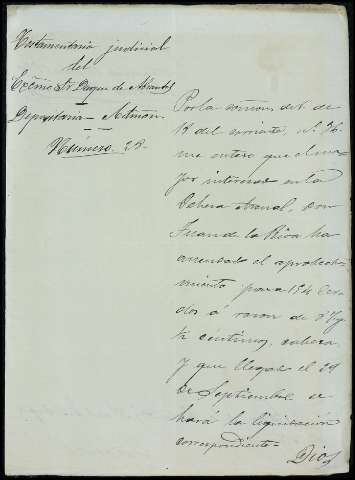 Testamentaria judicial
del
Excmo Sr Duque de Abrantes
Depositaria - Admon
Número 28-
Por la comon. del de
18 del corriente, nº
me entero que el ma-
yor interesado en la
Dehesa Arenal, Don
Juan de la Riva ha
arrendado el aprovecha-
miento para 154 Cer-
dos á razon de
céntimos, cabeza
y que llegue el 29
de Septiembre se
hará la liquidación
correspondiente-
Dios